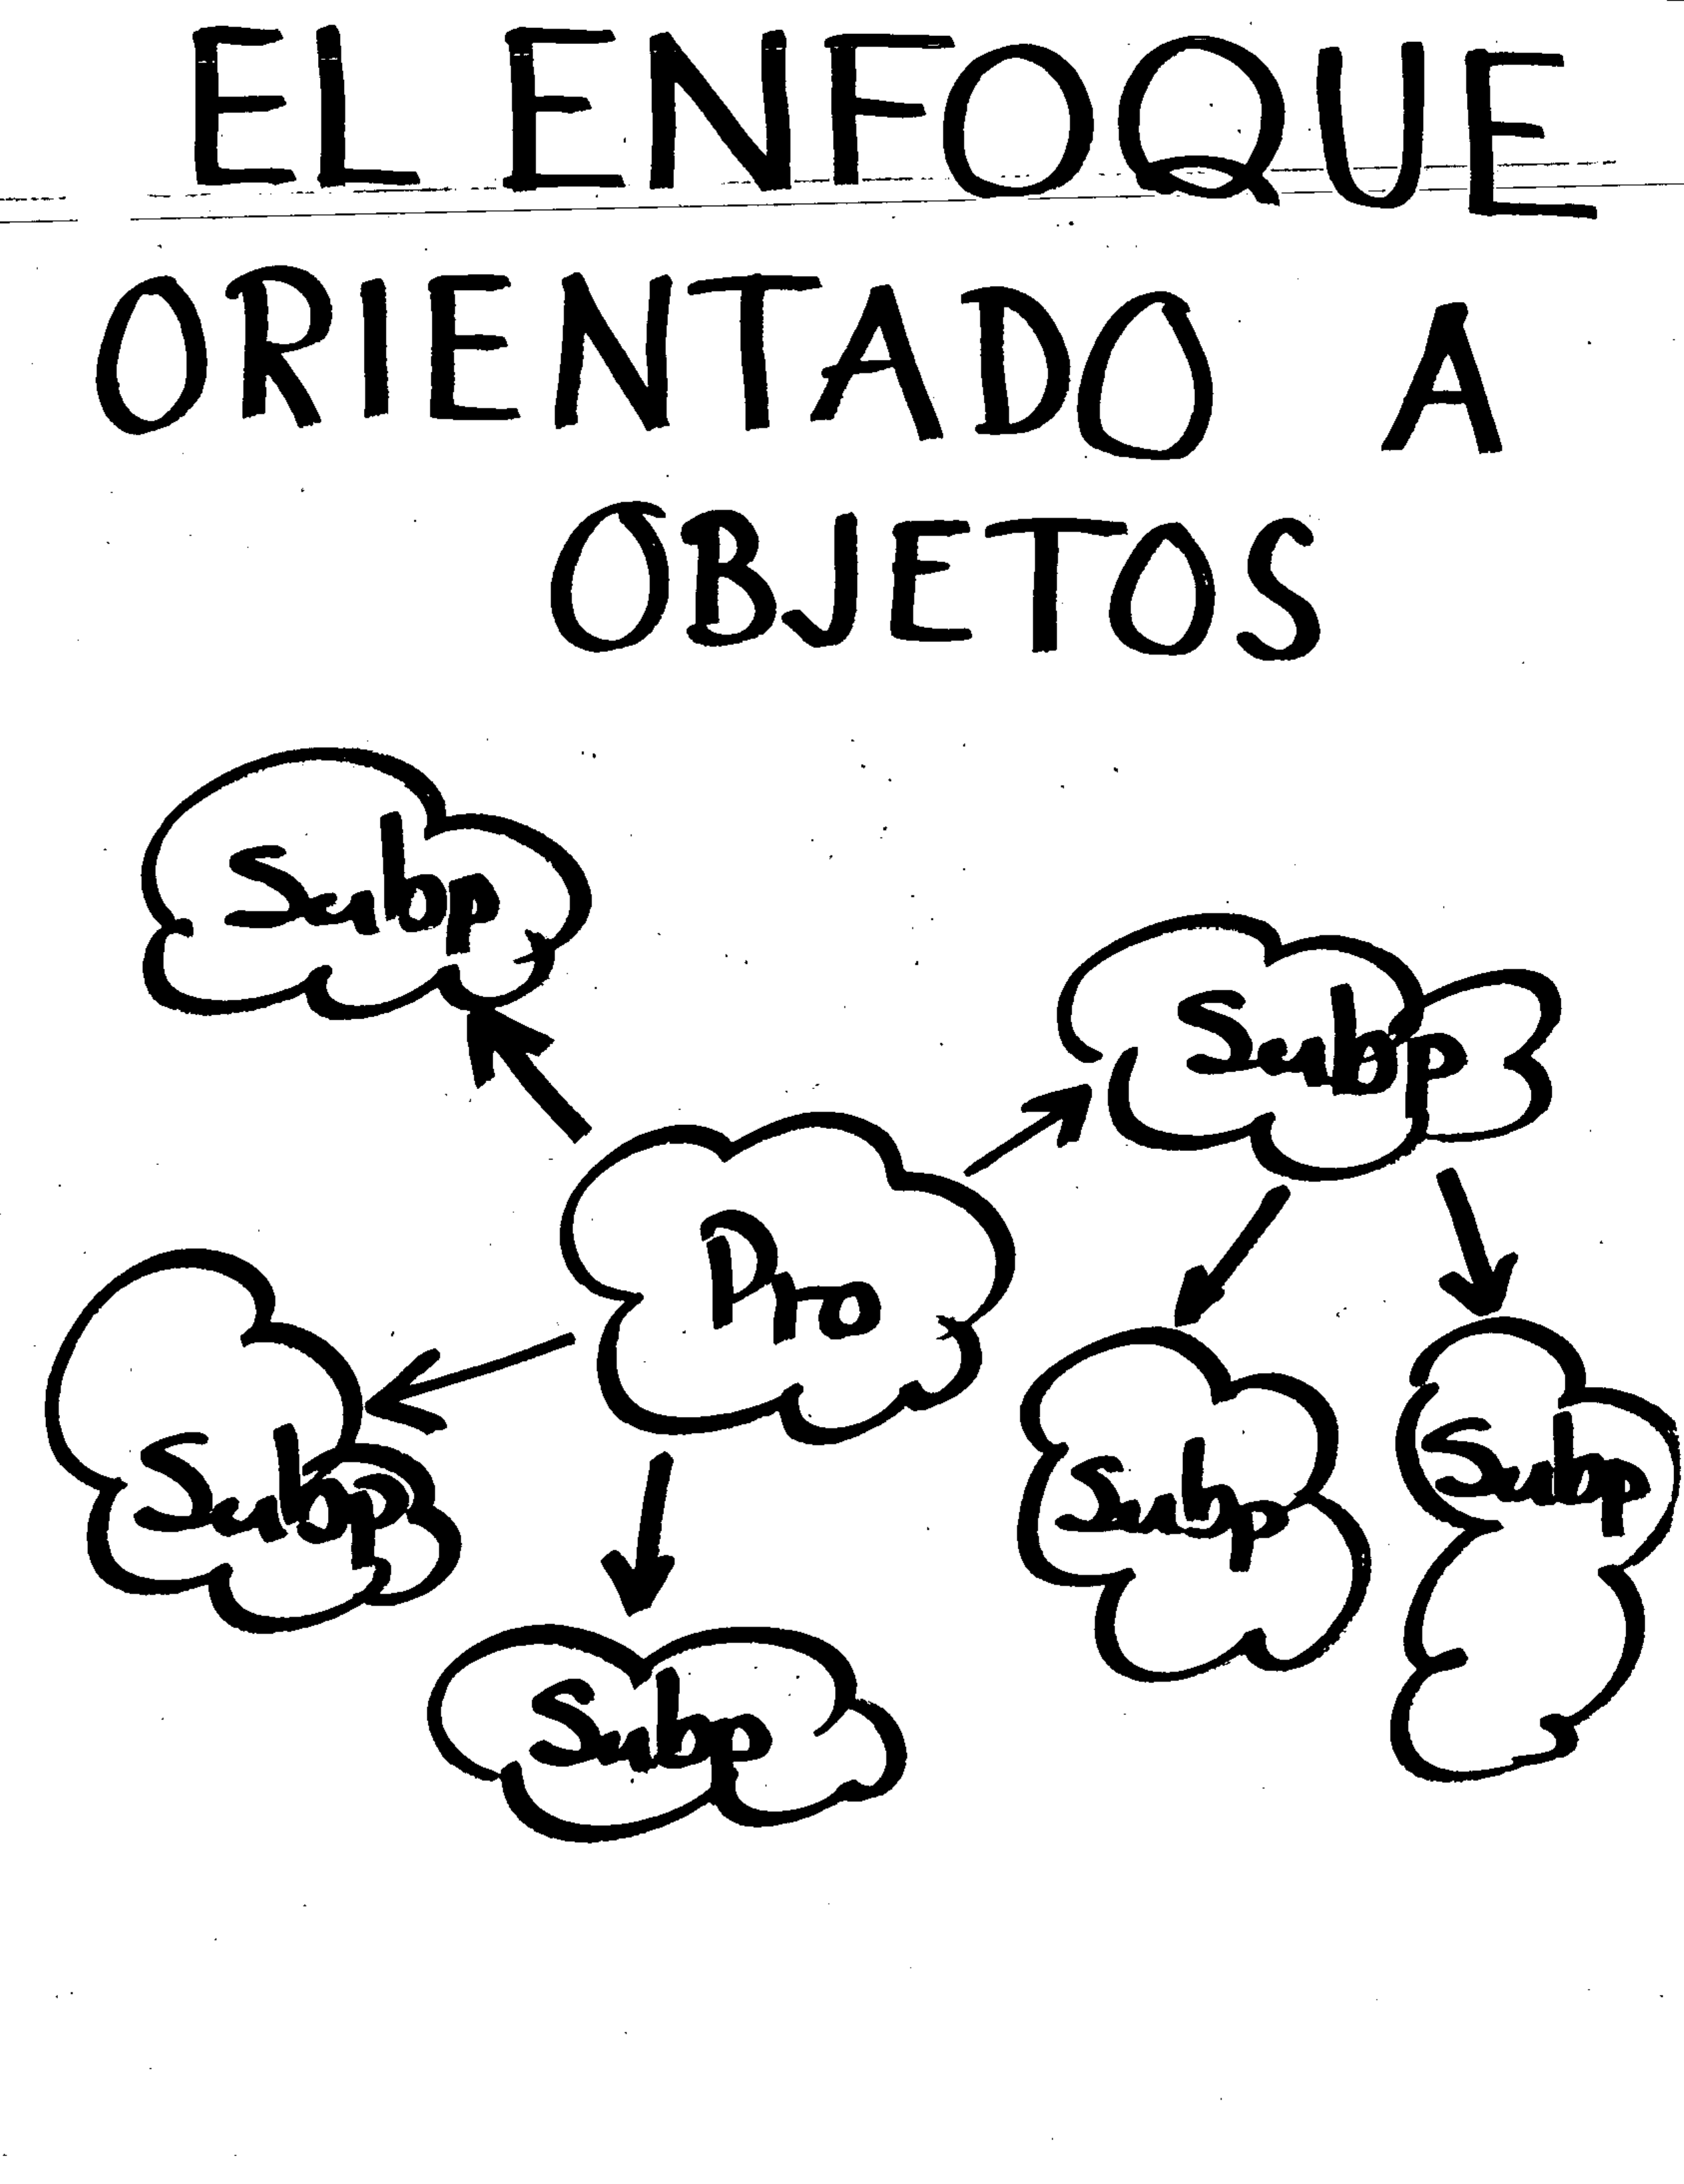 EL ENFOQUE
ORIENTADO A
OBJETOS
Subp
Subp
Pro
Subp
Subp
Subp
Subp